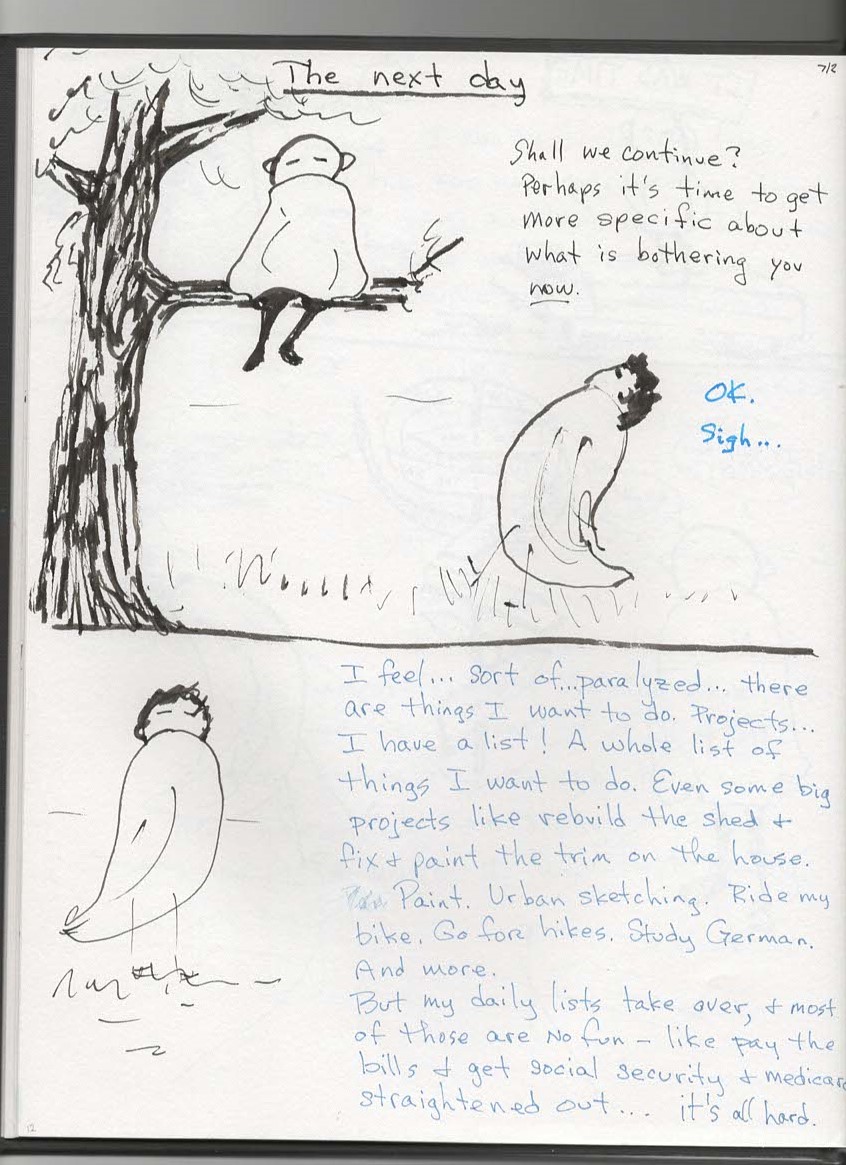 The next day
7/2
Shall we continue?
Perhaps it's time to get
more specific about
what is bothering you
now.
OK.
Sigh...
I feel... sort of...paralyzed... there
are things I want to do. Projects...
I have a list! A whole list of
things I want to do. Even some big
projects like rebuild the shed &
fix & paint the trim on the house.
Paint. Urban sketching. Ride my
bike. Go for hikes. Study German.
And more.
But my daily lists take over, & most
of those are No fun - like pay the
bills & get social security & medicare
straightened out... it's all hard.
12